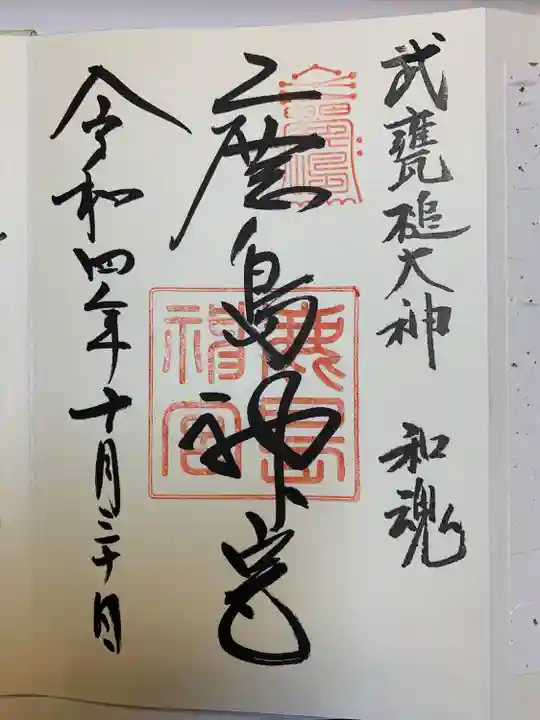 武甕槌大神 和魂
鹿島神宮
鹿島
神宮
令和四年十月三十日